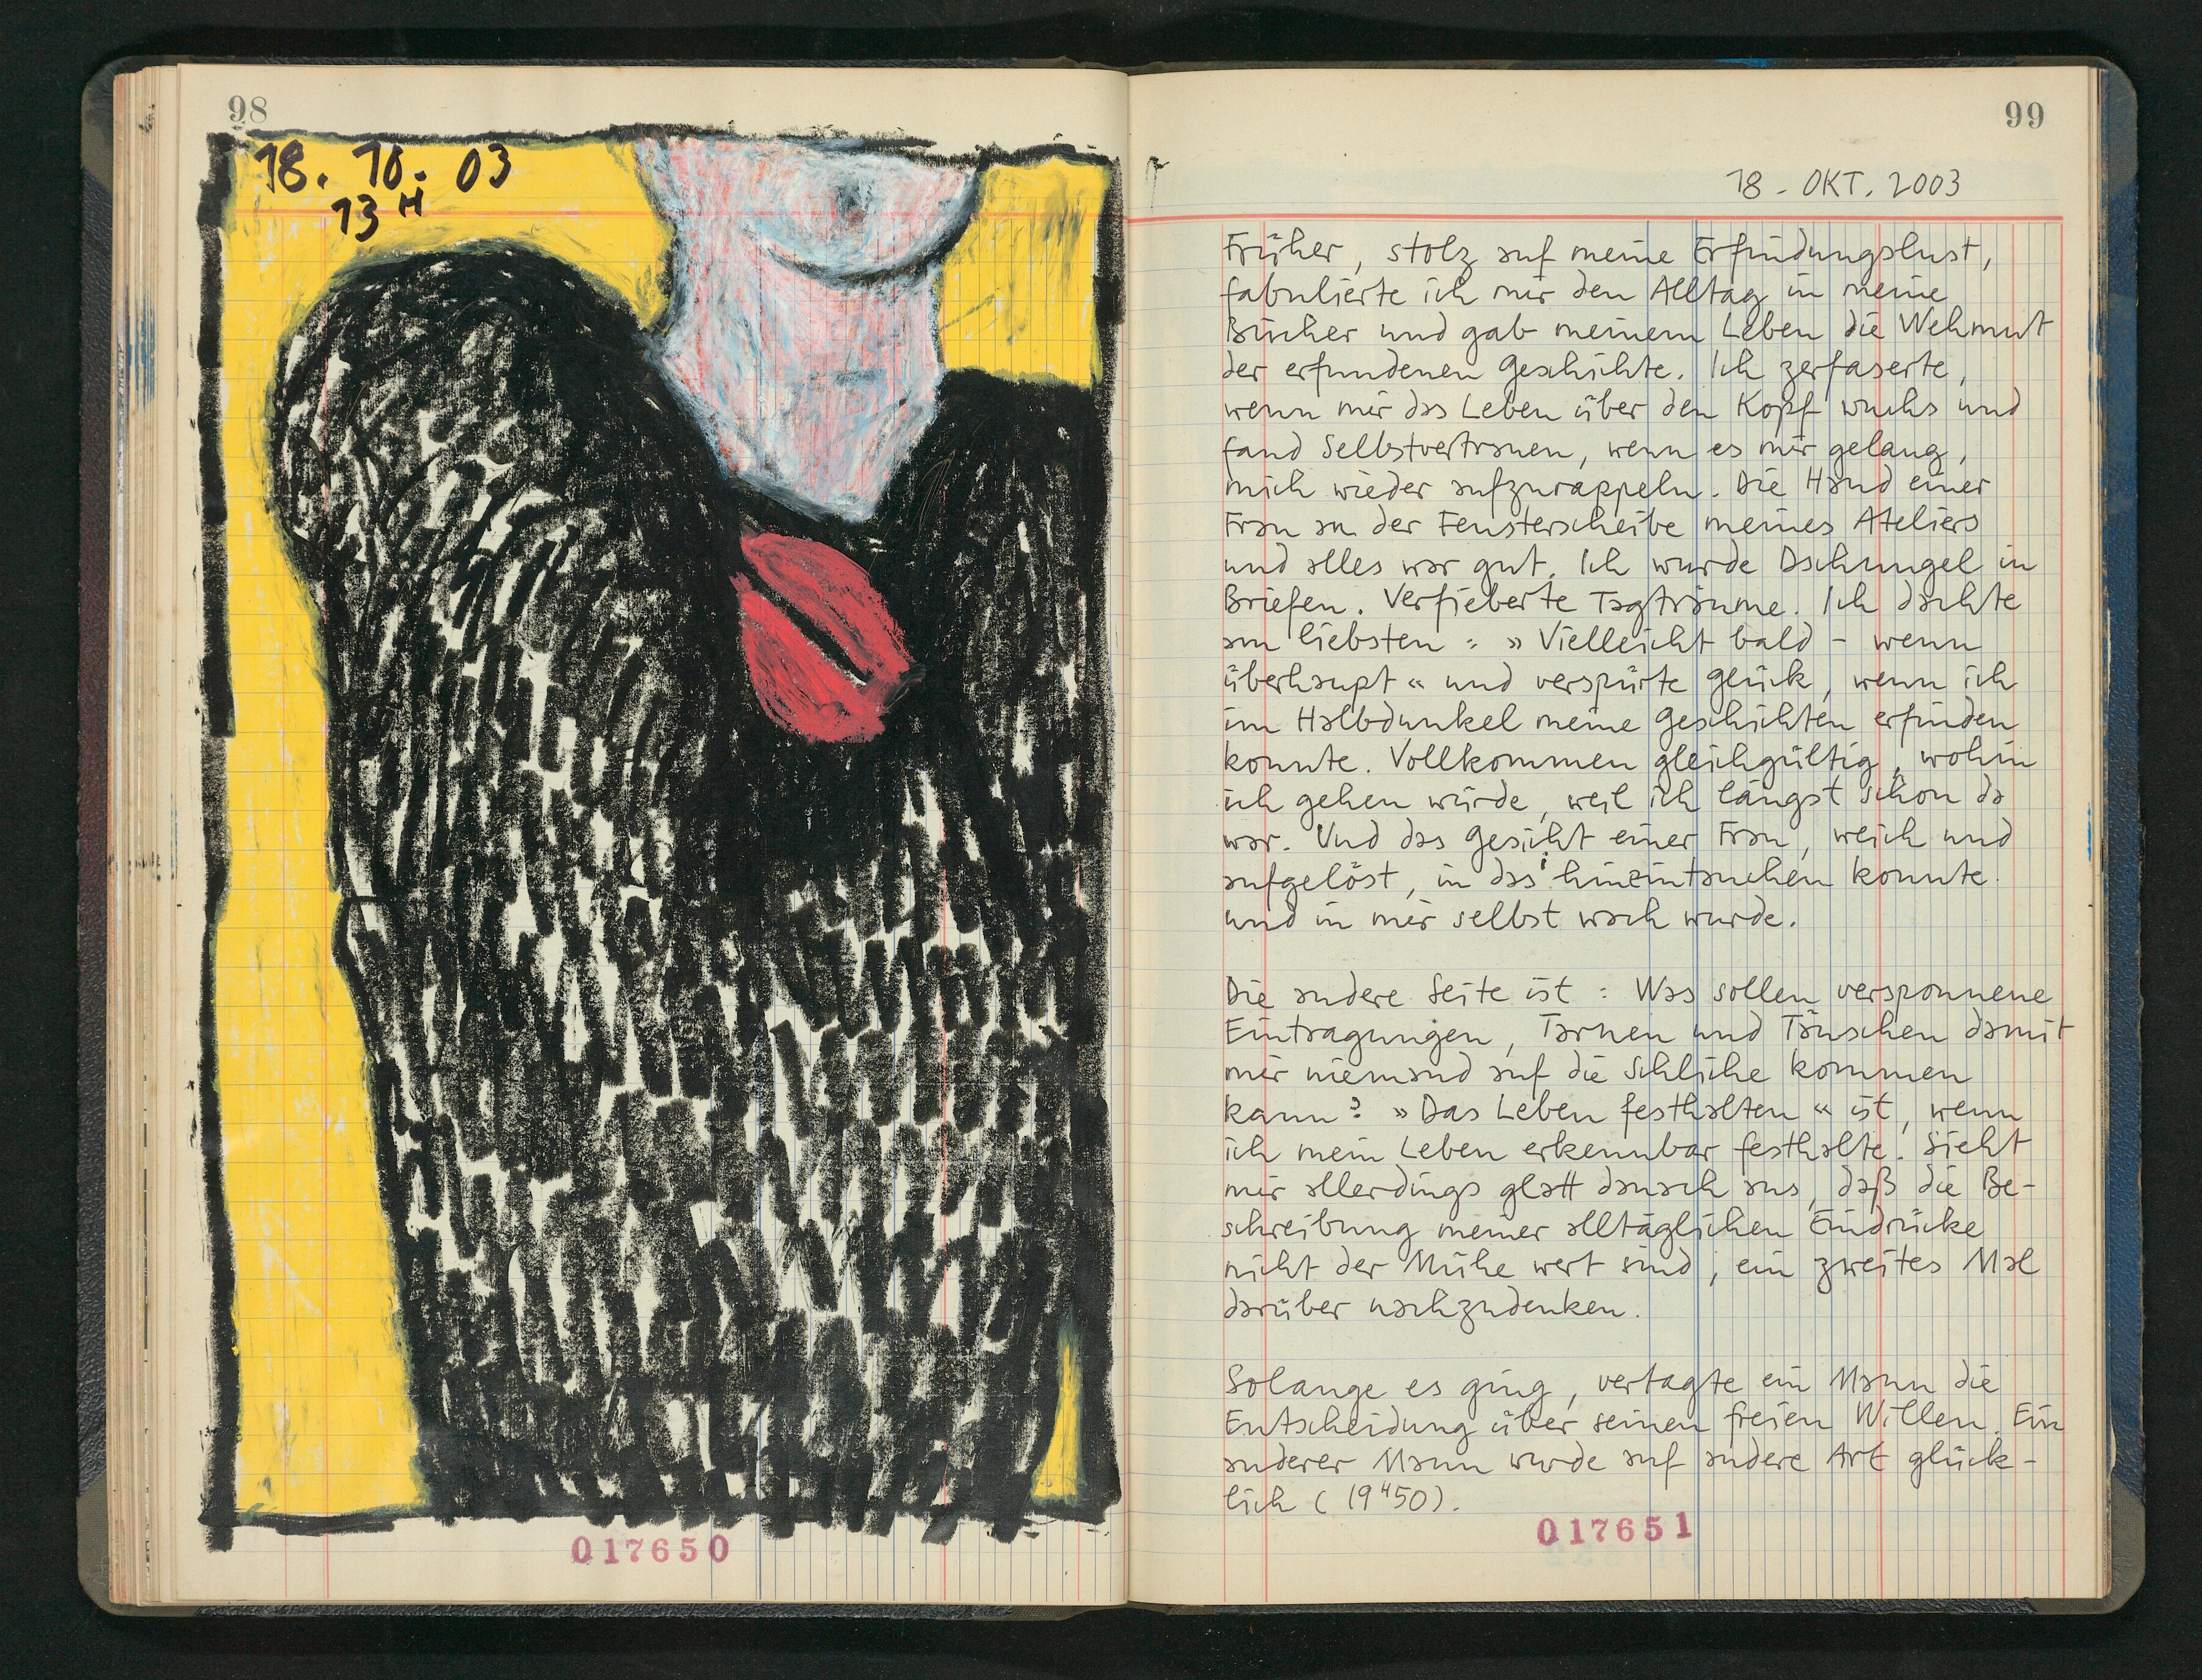 98
18. 10. 03
13 H
017650
99
18. OKT. 2003
Früher, stolz auf meine Erfindungslust,
fabulierte ich mir den Alltag in meine
Bücher und gab meinem Leben die Wehmut
der erfundenen Geschichte. Ich zerfaserte,
wenn mir das Leben über den Kopf wuchs und
fand Selbstvertrauen, wenn es mir gelang,
mich wieder aufzurappeln. Die Hand einer
Frau an der Fensterscheibe meines Ateliers
und alles war gut. Ich wurde Dschungel in
Briefen. Verfieberte Tagträume. Ich dachte
am liebsten: » Vielleicht bald – wenn
überhaupt « und verspürte Glück, wenn ich
im Halbdunkel meine Geschichten erfinden
konnte. Vollkommen gleichgültig, wohin
ich gehen würde, weil ich längst schon da
war. Und das Gesicht einer Frau, weich und
aufgelöst, in das i hineintauchen konnte
und in mir selbst wach wurde.
Die andere Seite ist: Was sollen versponnene
Eintragungen, Tarnen und Täuschen damit
mir niemand auf die Schliche kommen
kann? » Das Leben festhalten « ist, wenn
ich mein Leben erkennbar festhalte. Sieht
mir allerdings glatt danach aus, daß die Be-
schreibung meiner alltäglichen Eindrücke
nicht der Mühe wert sind, ein zweites Mal
darüber nachzudenken.
Solange es ging, vertagte ein Mann die
Entscheidung über seinen freien Willen. Ein
anderer Mann wurde auf andere Art glück-
lich (19H50).
017651